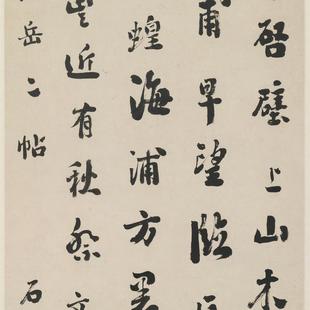 啓璧上山木
甫早望臨
蝗海浦方
近有秋祭文
岳二帖 石